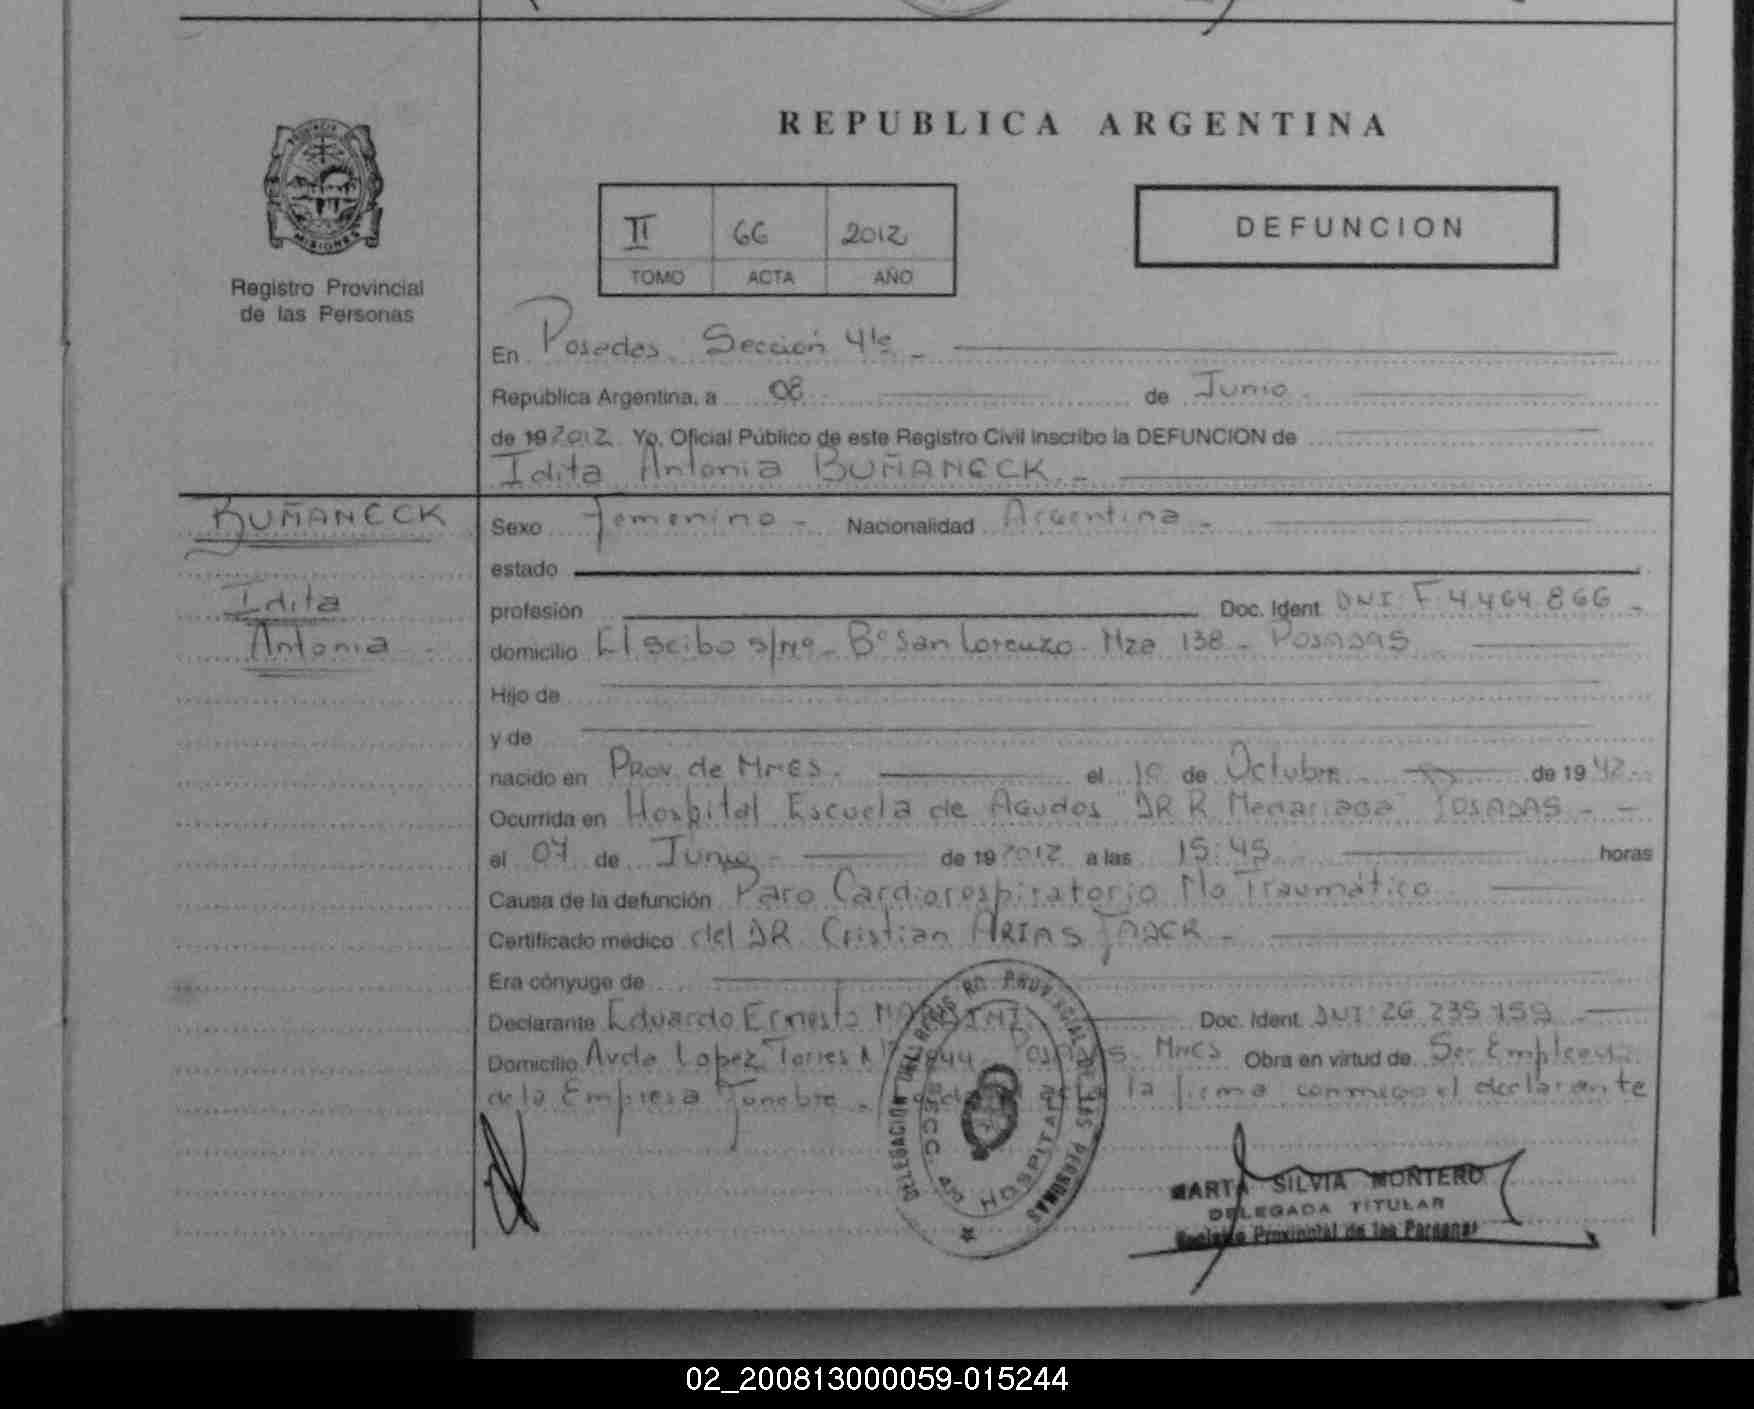 REPUBLICA ARGENTINA
PROVINCIA DE
MISIONES
Registro Provincial
de las Personas
II 66 2012
TOMO ACTA AÑO
DEFUNCION
En Posadas, Sección 4ta
Republica Argentina, a 08 de Junio
de 19 2012 Yo, Oficial Público de este Registro Civil inscribo la DEFUNCION de
Idita Antonia BUÑANECK
BUÑANECK
Idita
Antonia
Sexo Femenino Nacionalidad Argentina
estado
profesión Doc. Ident. DNI: F 4.464.866
domicilio El seibo s/nº - Bº San Lorenzo - Mza 138 - POSADAS
Hijo de
y de
nacido en Prov. de Mnes. el 10 de Octubre de 19 42
Ocurrida en Hospital Escuela de Agudos "DR R. Madariaga" POSADAS
el 07 de Junio de 19 2012 a las 15:45 horas
Causa de la defunción Paro Cardiorespiratorio No Traumático
Certificado médico del DR. Cristian ARIAS
Era cónyuge de
Declarante Eduardo Ernesto Doc. Ident. DNI: 26.235.759
Domicilio Avda Lopez Torres Nº Mnes Obra en virtud de Ser Empleado
de la Empresa Funebre - la firma conmigo el declarante
DELEGACION DE LAS PERSONAS
SECC. 4ta HOSPITAL
MARTA SILVIA MONTERO
DELEGADA TITULAR
Registro Provincial de las Personas
02_200813000059-015244